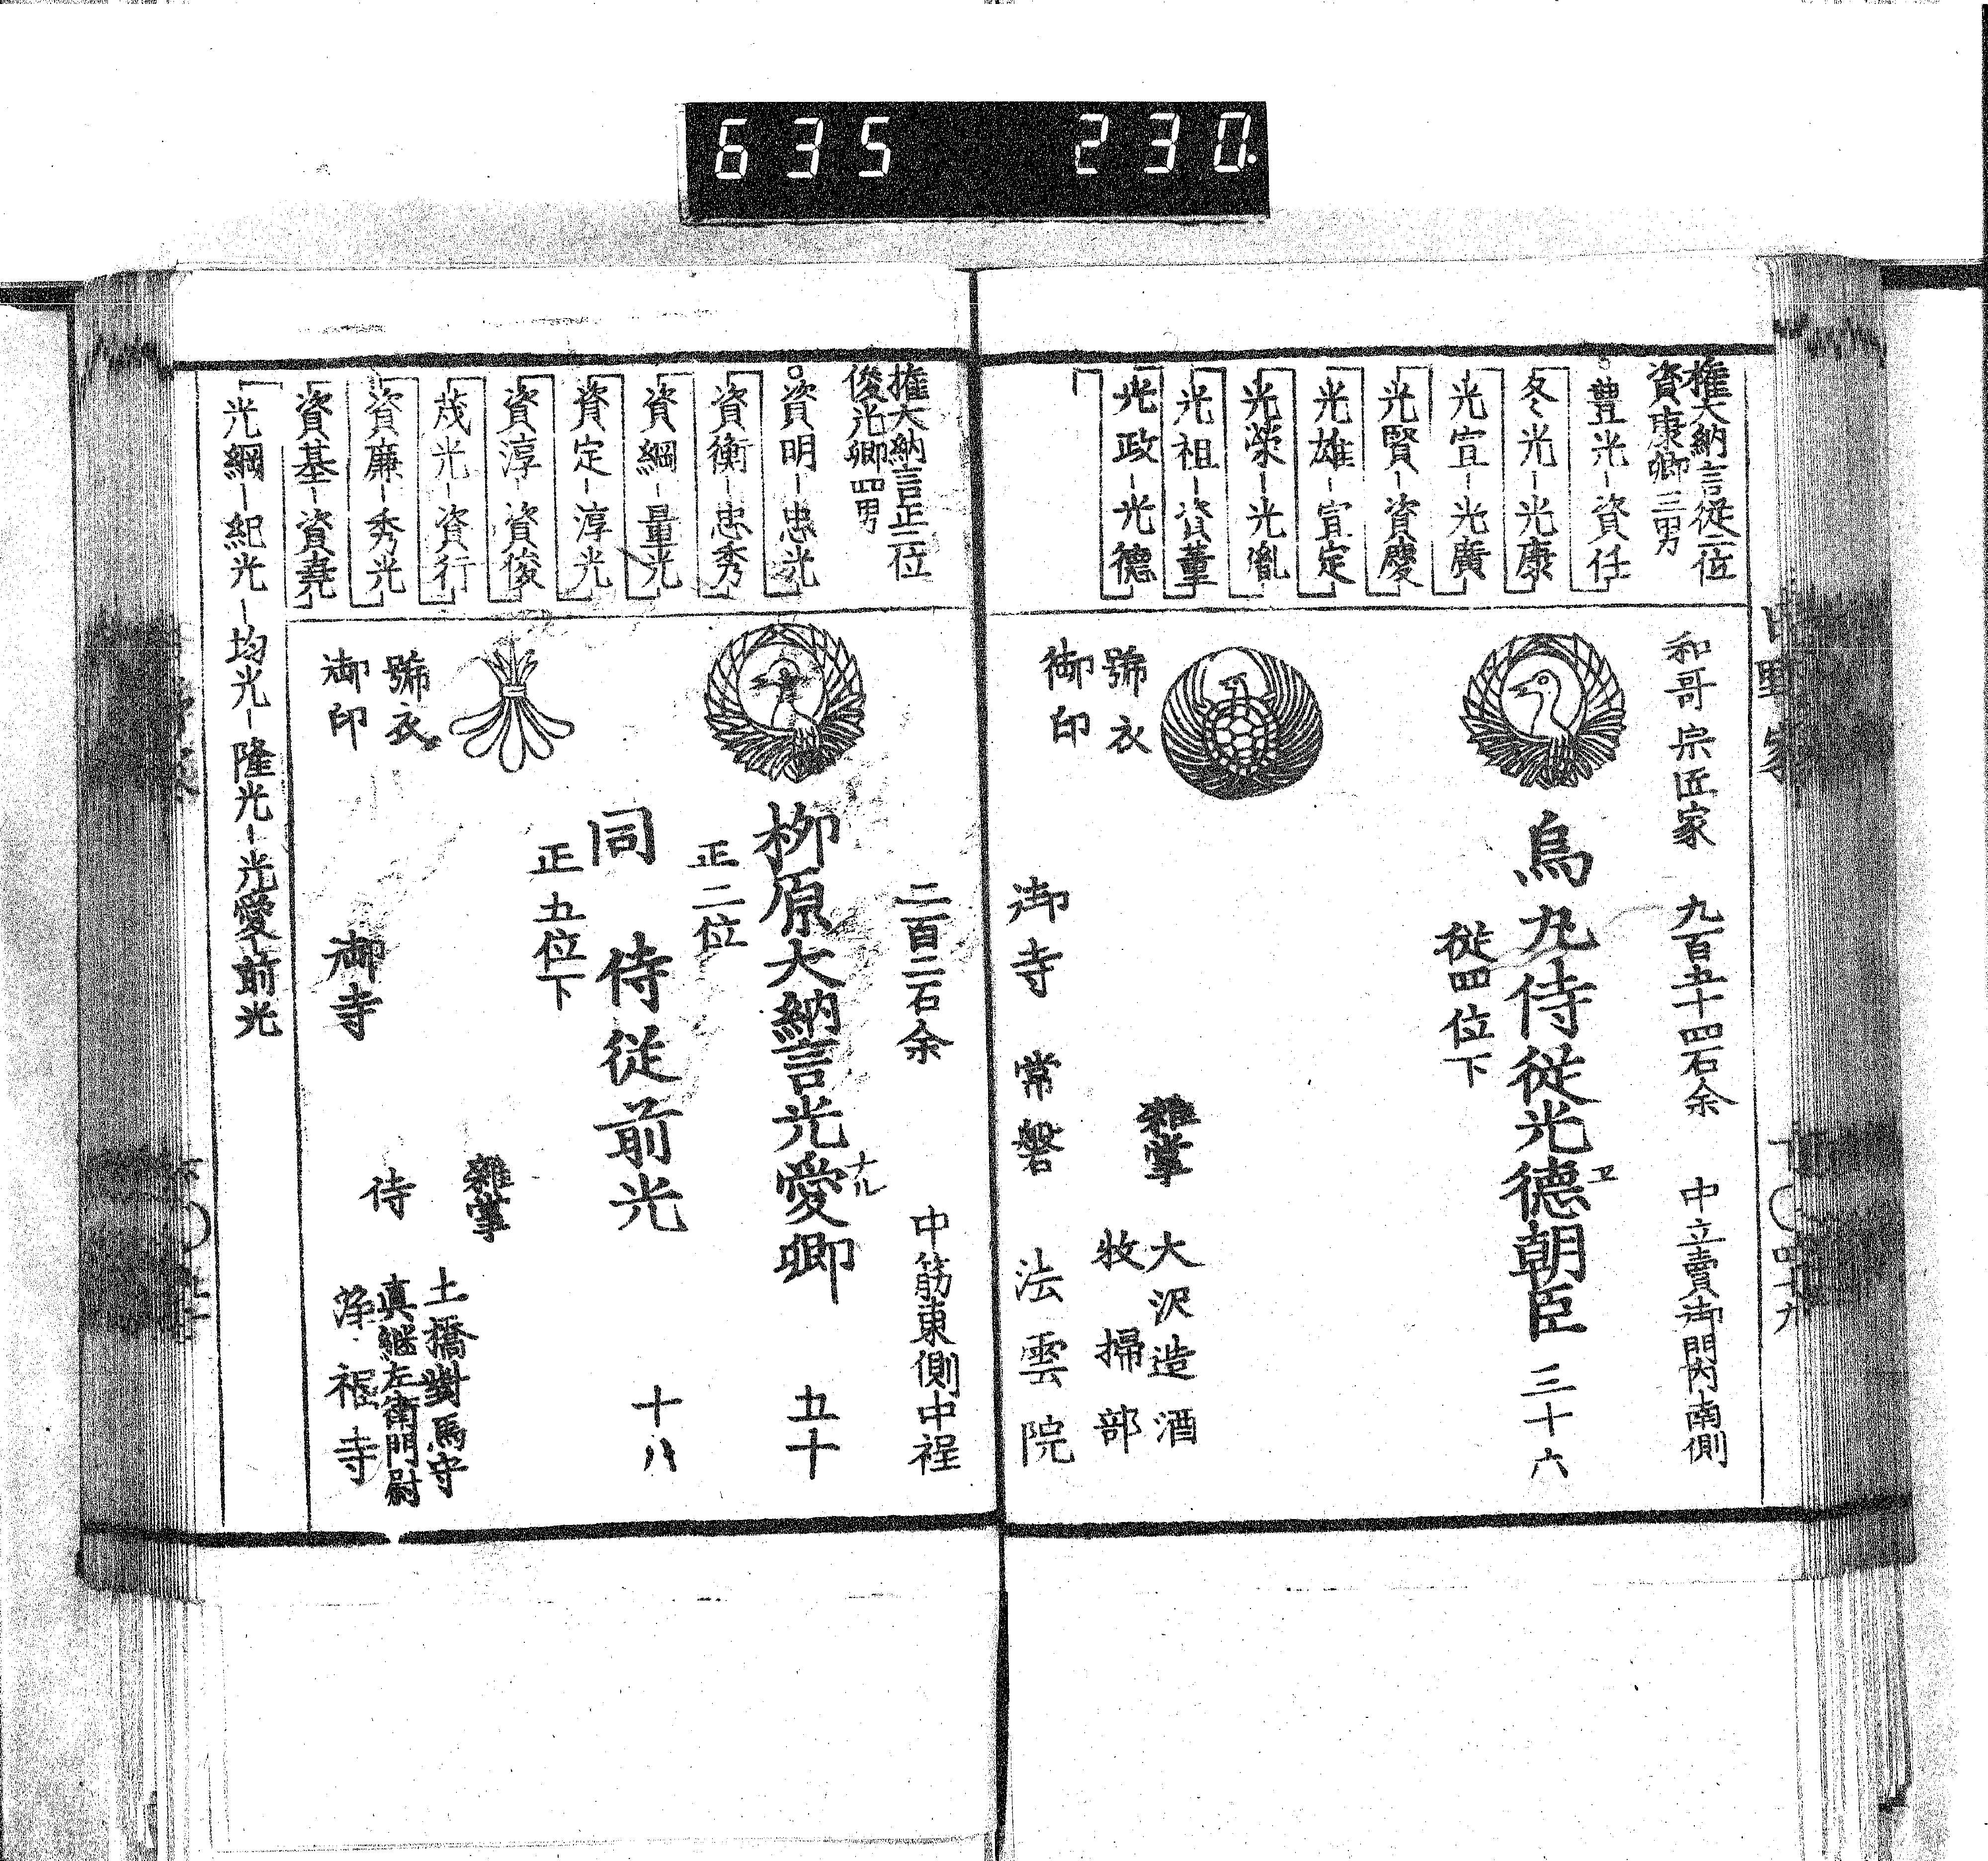 635 230.
權大納言従二位
資康卿三男
豊光-資任
冬光-光康
光宣-光廣
光賢-資慶
光雄-宣定
光榮-光胤
光祖-資董
光政-光德
和哥宗匠家 九百五十四石余 中立賣御門内南側
烏丸侍従光德朝臣 三十六
ヱ
従四位下
號衣
御印
雜掌 大沢造酒
牧掃部
御寺 常磐 法雲院
權大納言正二位
俊光卿四男
資明-忠光
資衡-忠秀
資綱-量光
資定-淳光
資淳-資俊
茂光-資行
資廉-秀光
資基-資堯
光綱-紀光-均光-隆光-光愛-前光
二百二石余 中筋東側中程
柳原大納言光愛卿 五十
ナル
正二位
同侍従前光 十八
正五位下
號衣
御印
雜掌 土橋對馬守
侍 真継左衛門尉
御寺 浄福寺